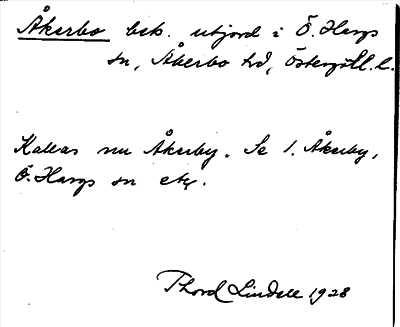 Åkerbo bek. utjord i Ö. Hargs
sn, Åkerbo hd, Östergötl. l.
Kallas nu Åkerby. Se 1. Åkerby,
Ö. Hargs sn etc.
Thord Lindell 1928